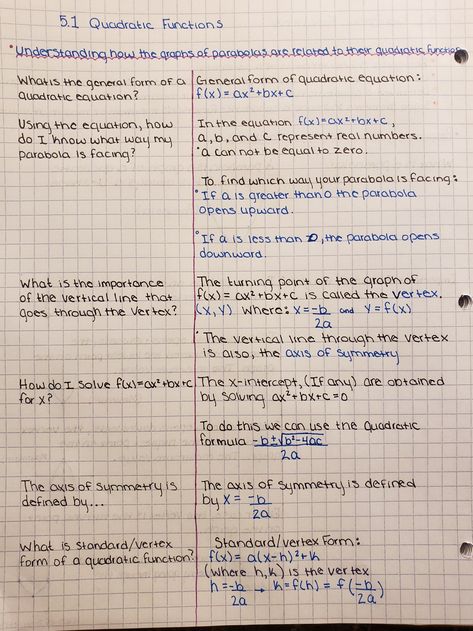 5.1 Quadratic Functions
*Understanding how the graphs of parabolas are related to their quadratic functions
What is the general form of a
quadratic equation?
General form of quadratic equation:
f(x) = ax²+bx+c
Using the equation, how
do I know what way my
parabola is facing?
In the equation f(x)=ax²+bx+c,
a, b, and c represent real numbers.
*a can not be equal to zero.
To find which way your parabola is facing:
*If a is greater than 0 the parabola
opens upward.
*If a is less than 0, the parabola opens
downward.
What is the importance
of the vertical line that
goes through the vertex?
The turning point of the graph of
f(x) = ax²+bx+c is called the vertex.
(x,y) where: x=-b/2a and y=f(x)
*The vertical line through the vertex
is also, the axis of symmetry
How do I solve f(x)=ax²+bx+c
for x?
The x-intercept, (If any) are obtained
by solving ax²+bx+c=0
To do this we can use the quadratic
formula -b±√b²-4ac/2a
The axis of symmetry is
defined by...
The axis of symmetry is defined
by x = -b/2a
What is standard/vertex
form of a quadratic function?
Standard/vertex Form:
f(x)= a(x-h)²+k
(where h,k) is the vertex
h=-b/2a → k=f(h) = f(-b/2a)